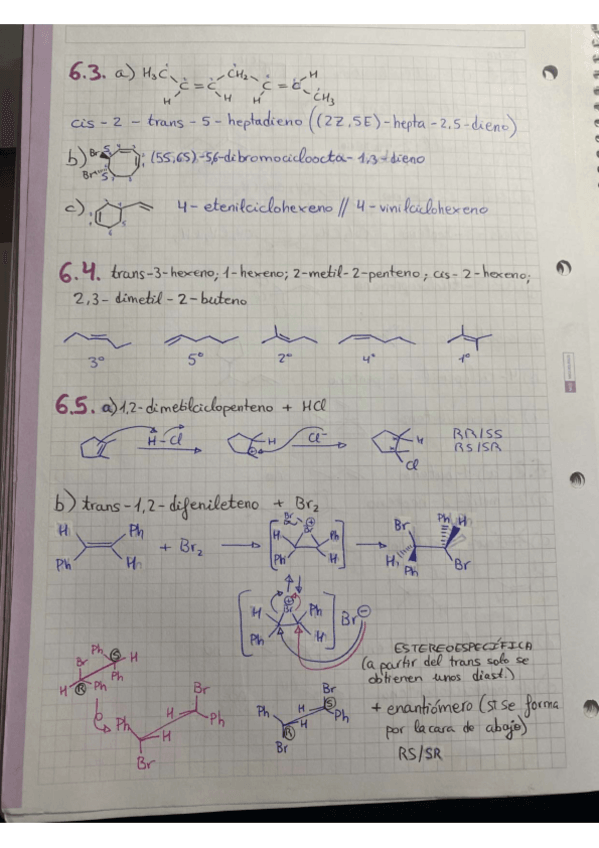 6.3. a) H₃C C = C CH₂ C = C H
H H H CH₃
cis-2-trans-5-heptadieno ((2Z,5E)-hepta-2,5-dieno)
b) Br S Br S ; (5S,6S)-5,6-dibromocicloocta-1,3-dieno
c) 4-etenilciclohexeno // 4-vinilciclohexeno
6.4. trans-3-hexeno; 1-hexeno; 2-metil-2-penteno; cis-2-hexeno;
2,3-dimetil-2-buteno
3º 5º 2º 4º 1º
6.5. a) 1,2-dimetilciclopenteno + HCl
H-Cl H ⊕ Cl⁻ H Cl RR/SS
RS/SR
b) trans-1,2-difenileteno + Br₂
H Ph Ph H + Br₂ [Br ⊕ Br H Ph Ph H] Br H Ph Ph H Br
[⊕ Br H Ph Ph H] Br⊖
ESTEREOESPECÍFICA
(a partir del trans solo se
obtienen unos diast.)
Ph S H Br Ph H R Ph
+ enantiómero (si se forma
por la cara de abajo)
RS/SR
Br Ph H H Ph Br
Ph H H Br S Ph R Br